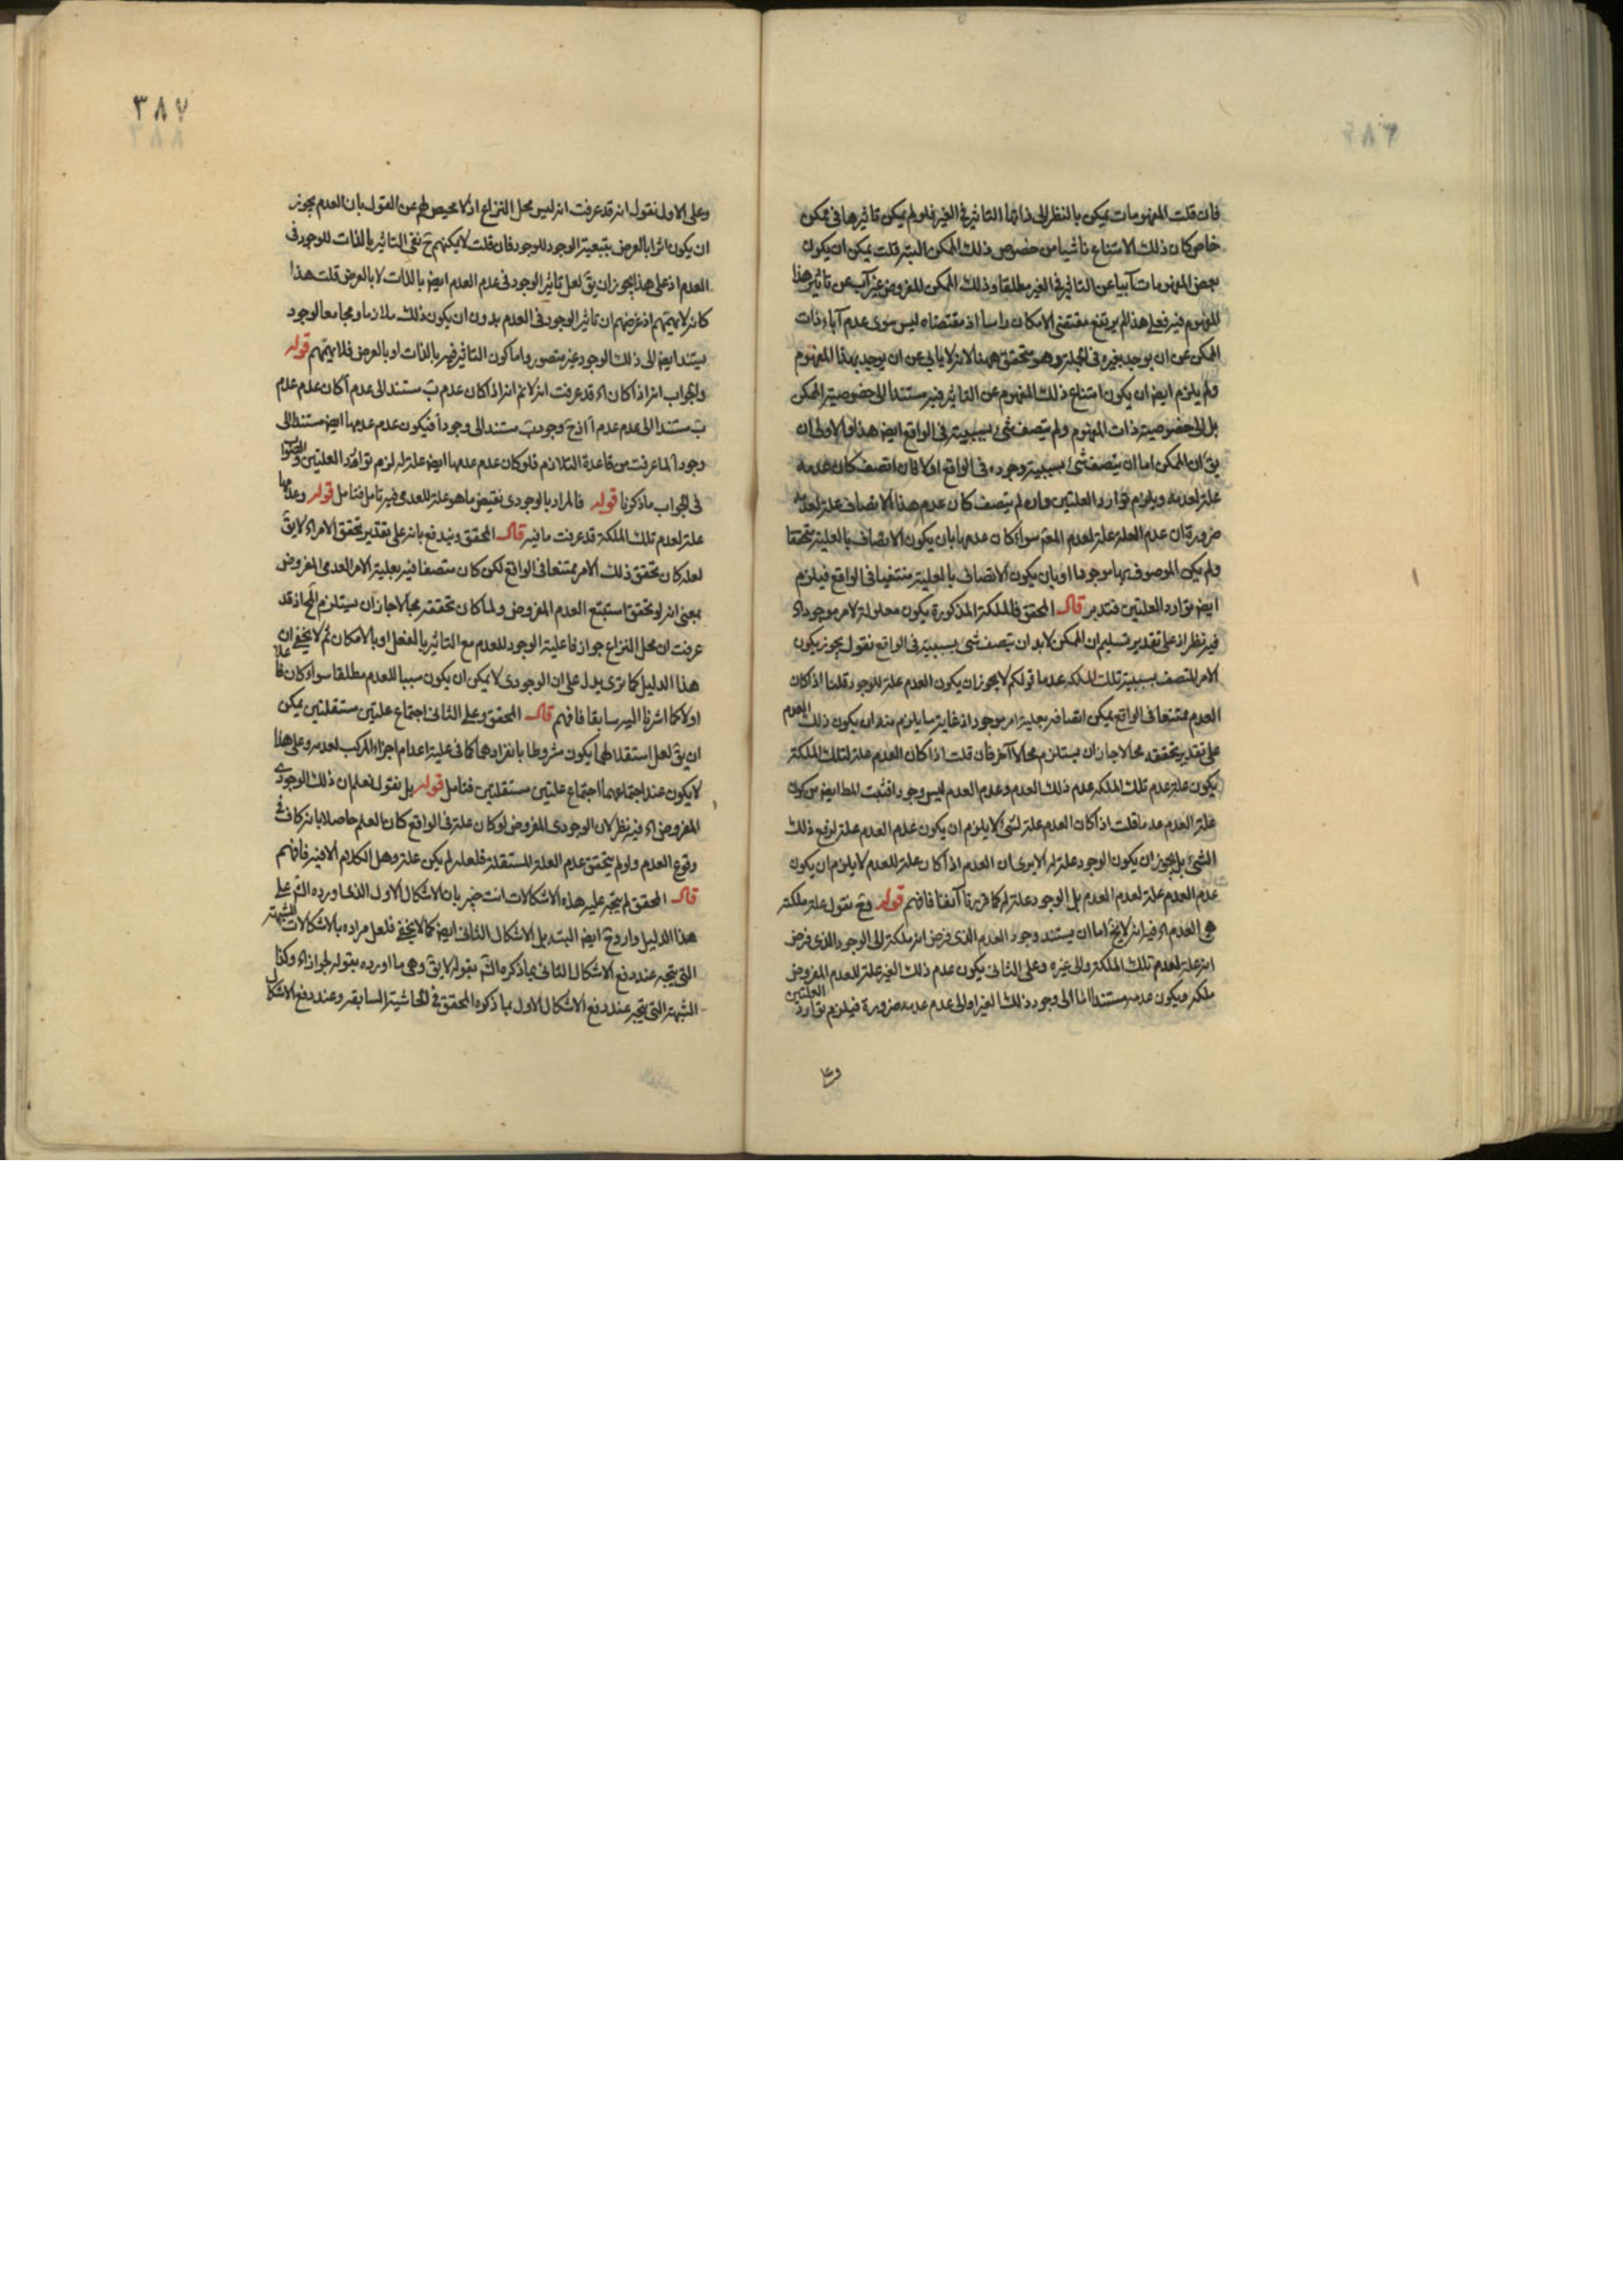 فان قلت المفهومات يمكن بالنظر الى ذاتها التاثير فى الغير فلو لم يمكن تاثيرها فى ممكن
خاص كان ذلك الامتناع ناشيا من خصوص ذلك الممكن البتة قلت يمكن ان يكون
بعض المفهومات آبيا عن التاثير فى الغير مطلقا وذلك الممكن المفروض غير آب عن تاثير هذا
المفهوم فيه فعلى هذا لم يرتفع مقتضى الامكان راسا اذ مقتضاه ليس سوى عدم آباء ذات
الممكن عن ان يوجد بغيره فى الجملة وهو متحقق ههنا لانه لا يابى عن ان يوجد بهذا المفهوم
ولم يلزم ايض ان يكون امتناع ذلك المفهوم عن التاثير فيه مستندا الى خصوصية الممكن
بل الى خصوصية ذات المفهوم ولم يتصف شئ بسببيته فى الواقع ايض هذا والاولى ان
يق ان الممكن اما ان يتصف شئ بسببية وجوده فى الواقع اولا فان اتصف كان عدمه
علة لعدمه ويلزم توارد العلتين وان لم يتصف كان عدم هذا الاتصاف علة لعدمه
ضرورة ان عدم العلة علة لعدم المعلم سواء كان عدمها بان يكون الاتصاف بالعلية متحققا
ولم يكن الموصوف بها موجودا او بان يكون الاتصاف بالعلية منتفيا فى الواقع فيلزم
ايض توارد العلتين فتدبر قال المحقق فالملكة المذكورة يكون معلولة لامر موجود اه
فيه نظر اذ على تقدير تسليم ان الممكن لابد ان يتصف شئ بسببيته فى الواقع نقول يجوز يكون
الامر المتصف بسببية تلك الملكة عدما قولكم لا يجوز ان يكون العدم علة للوجود قلنا اذا كان
العدم ممتنعا فى الواقع يمكن اتصافه بعلية امر موجود اذ غاية ما يلزم منه ان يكون ذلك العدم
على تقدير تحققه محالا جاز ان يستلزم محالا آخر فان قلت اذا كان العدم علة لتلك الملكة
يكون علة عدم تلك الملكة عدم ذلك العدم وعدم العدم ليس وجودا فثبت المط ايض من كون
علة العدم عدما قلت اذا كان العدم علة لشئ لا يلزم ان يكون عدم العدم علة لرفع ذلك
الشئ بل يجوز ان يكون الوجود علة له الا يرى ان العدم اذا كان علة للعدم لا يلزم ان يكون
عدم العدم علة لعدم العدم بل الوجود علة له كما قررنا آنفا فافهم قوله وح نقول علة ملكة
هى العدم اه فيه انه لا يخ اما ان يستند وجود العدم الذى فرض انه ملكة الى الوجود الذى فرض
انه علة لعدم تلك الملكة والى غيره وعلى الثانى يكون عدم ذلك الغير علة للعدم المفروض
ملكة ويكون عدمه مستندا اما الى وجود ذلك الغير او الى عدم عدمه ضرورة فيلزم توارد العلتين
وعلى
٣٨٧
وعلى الاول نقول انه قد عرفت انه ليس محل النزاع اذ لا محيص لهم عن القول بان العدم يجوز
ان يكون اثرا بالعرض بتبعية الوجود للوجود فان قلت لا يمكنهم ح نفى التاثير بالذات للوجود فى
العدم اذ على هذا يجوز ان يق لعل تاثير الوجود فى عدم العدم ايض بالذات لا بالعرض قلت هذا
كانه لا يهمهم اذ غرضهم ان تاثير الوجود فى العدم بدون ان يكون ذلك ملازما ومجامعا لوجود
يستند ايض الى ذلك الوجود غير متصور واما كون التاثير فيه بالذات او بالعرض فلا يهمهم قوله
والجواب انه اذا كان اه قد عرفت انه لا نم انه اذا كان عدم ب مستند الى عدم آ كان عدم عدم
ب مستندا الى عدم عدم آ اذ ح وجود ب مستند الى وجود آ فيكون عدم عدمها ايض مستندا الى
وجود آ لما عرفت من قاعدة التلازم فلو كان عدم عدمها ايض علة له لزم توارد العلتين والصواب
فى الجواب ما ذكرنا قوله فالمراد بالوجودى نقيض ما هو علة للعدمى فيه تامل فتامل قوله وعدمها
علة لعدم تلك الملكة قد عرفت ما فيه قال المحقق ويندفع بانه على تقدير تحقق الامر اه لا يق
لعله كان تحقق ذلك الامر ممتنعا فى الواقع لكن كان متصفا فيه بعلية الامر العدمى المفروض
بمعنى انه لو تحقق استتبع العدم المفروض ولما كان تحققه محالا جاز ان يستلزم المح اذ قد
عرفت ان محل النزاع جواز فاعلية الوجود للعدم مع التاثير بالفعل او بالامكان ثم لا يخفى ان
هذا الدليل كما ترى يدل على ان الوجودى لا يمكن ان يكون سببا للعدم مطلقا سواء كان فاعلا
اولا كما اشرنا اليه سابقا فافهم قال المحقق وعلى الثانى اجتماع علتين مستقلتين يمكن
ان يق لعل استقلالهما يكون مشروطا بانفرادهما كما فى علية اعدام اجزاء المركب لعدمه وعلى هذا
لا يكون عند اجتماعهما اجتماع علتين مستقلتين فتامل قوله بل نقول نعلم ان ذلك الوجودى
المفروض اه فيه نظر لان الوجودى المفروض لو كان علة فى الواقع كان العلم حاصلا بانه كاف فى
وقوع العدم ولو لم يتحقق عدم العلة المستقلة فلعله لم يكن علة وهل الكلام الا فيه فافهم
قال المحقق لم يتجه عليه هذه الاشكالات انت خبير بان الاشكال الاول الذى اورده الش على
هذا الدليل وارد ح ايض البتة بل الاشكال الثانى ايض كما لا يخفى فلعل مراده بالاشكالات الشبهة
التى يتجه عند دفع الاشكال الثانى بما ذكره الش بقوله لا يق وهى ما اورده بقوله لجواز اه وكذا
الشبهة التى يتجه عند دفع الاشكال الاول بما ذكره المحقق فى الحاشية السابقة وعند دفع الاشكال